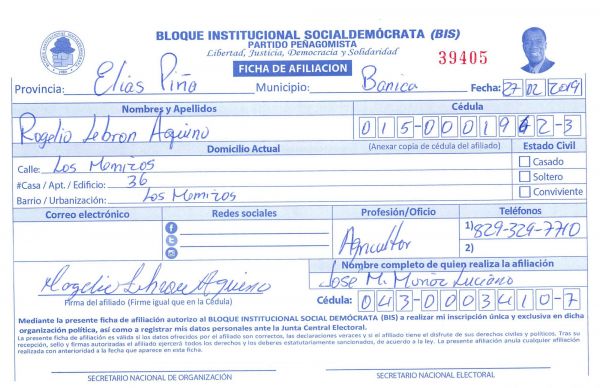 BLOQUE INSTITUCIONAL SOCIALDEMÓCRATA (BIS)
PARTIDO PEÑAGOMISTA
Libertad, Justicia, Democracia y Solidaridad
39405
FICHA DE AFILIACION
Provincia: Elias Piña Municipio: Banica Fecha: 27 02 2019
Nombres y Apellidos Cédula
Rogelio Lebron Aquino 015-0001962-3
Domicilio Actual (Anexar copia de cédula del afiliado) Estado Civil
Calle: Los Memizos Casado
#Casa / Apt. / Edificio: 36 Soltero
Barrio / Urbanización: Los Memizos Conviviente
Correo electrónico Redes sociales Profesión/Oficio Teléfonos
Agricultor 1) 829-329-7710
2)
Nombre completo de quien realiza la afiliación
Rogelio Lebron Aquino Jose M. Muñoz Luciano
Firma del afiliado (Firme igual que en la Cédula) Cédula: 043-0003410-7
Mediante la presente ficha de afiliación autorizo al BLOQUE INSTITUCIONAL SOCIAL DEMÓCRATA (BIS) a realizar mi inscripción única y exclusiva en dicha
organización política, así como a registrar mis datos personales ante la Junta Central Electoral.
La presente ficha de afiliación es válida si los datos ofrecidos por el afiliado son correctos, las declaraciones veraces y si el afiliado tiene el disfrute de sus derechos civiles y políticos. Tras su
recepción, sello y firmas autorizadas el afiliado ejercerá todos los derechos y los deberes estatutariamente sancionados, de acuerdo a la ley. La presente afiliación anula cualquier afiliación
realizada con anterioridad a la fecha que aparece en esta ficha.
SECRETARIO NACIONAL DE ORGANIZACIÓN SECRETARIO NACIONAL ELECTORAL